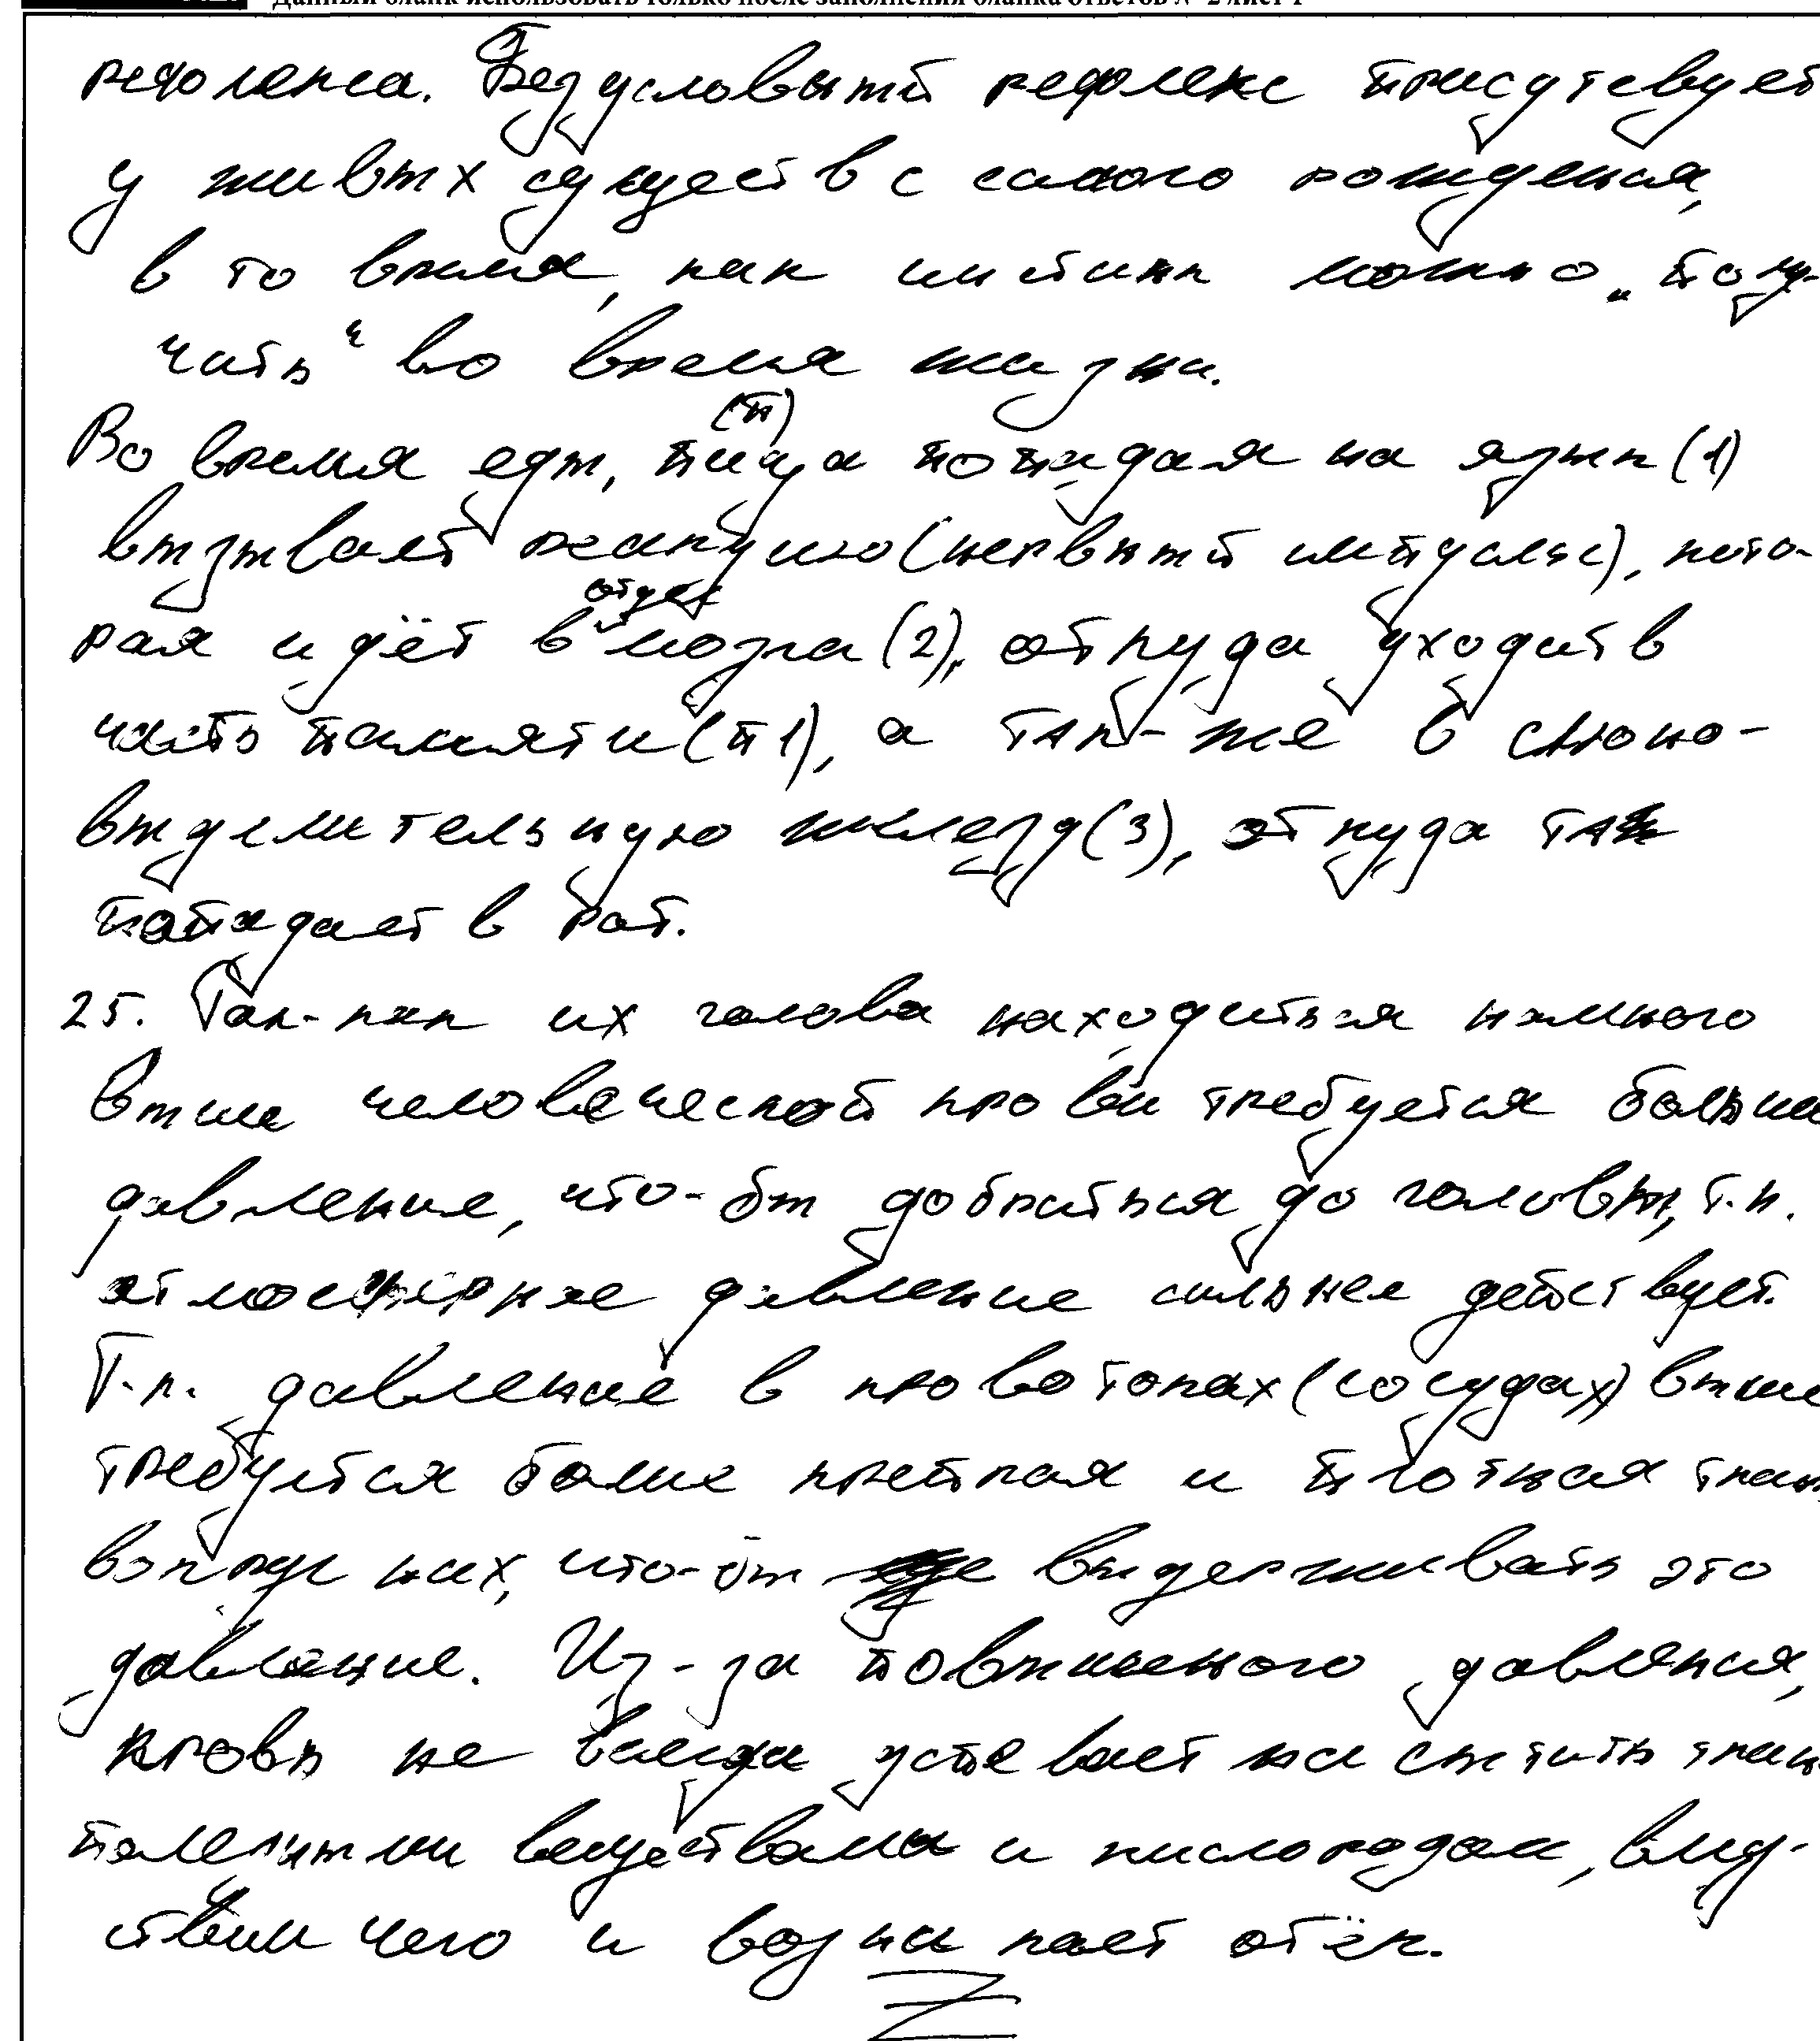 Данный бланк использовать только после заполнения бланка ответов № 2 лист 1
рефлекса. Безусловный рефлекс присутсвует
у живых существ с самого рождения,
в то время, как инстинк можно „полу-
чить“ во время жизни.
(п)
Во время еды, пища попадая на язык (1)
вызывает реакцию (нервный импульс), кото-
отдел
рая идёт в мозга (2), откуда уходит в
часть памяти (п1), а так-же в слюно-
выделительную железу (3), откуда так
попадает в рот.
25. Так-как их голова находиться намного
выше человеческой крови требуется больше
давление, что-бы добраться до головы, т.к.
атмосферное давление сильнее действует.
Т.к. давление в кровотоках (сосудах) выше
требуется более крепкая и плотная ткань
вокруг них, что-бы выдерживать это
давление. Из-за повышеного давления,
кровь не всегда успевает насытить ткани
полезными веществами и кислородом, влед-
ствии чего и возникает отёк.